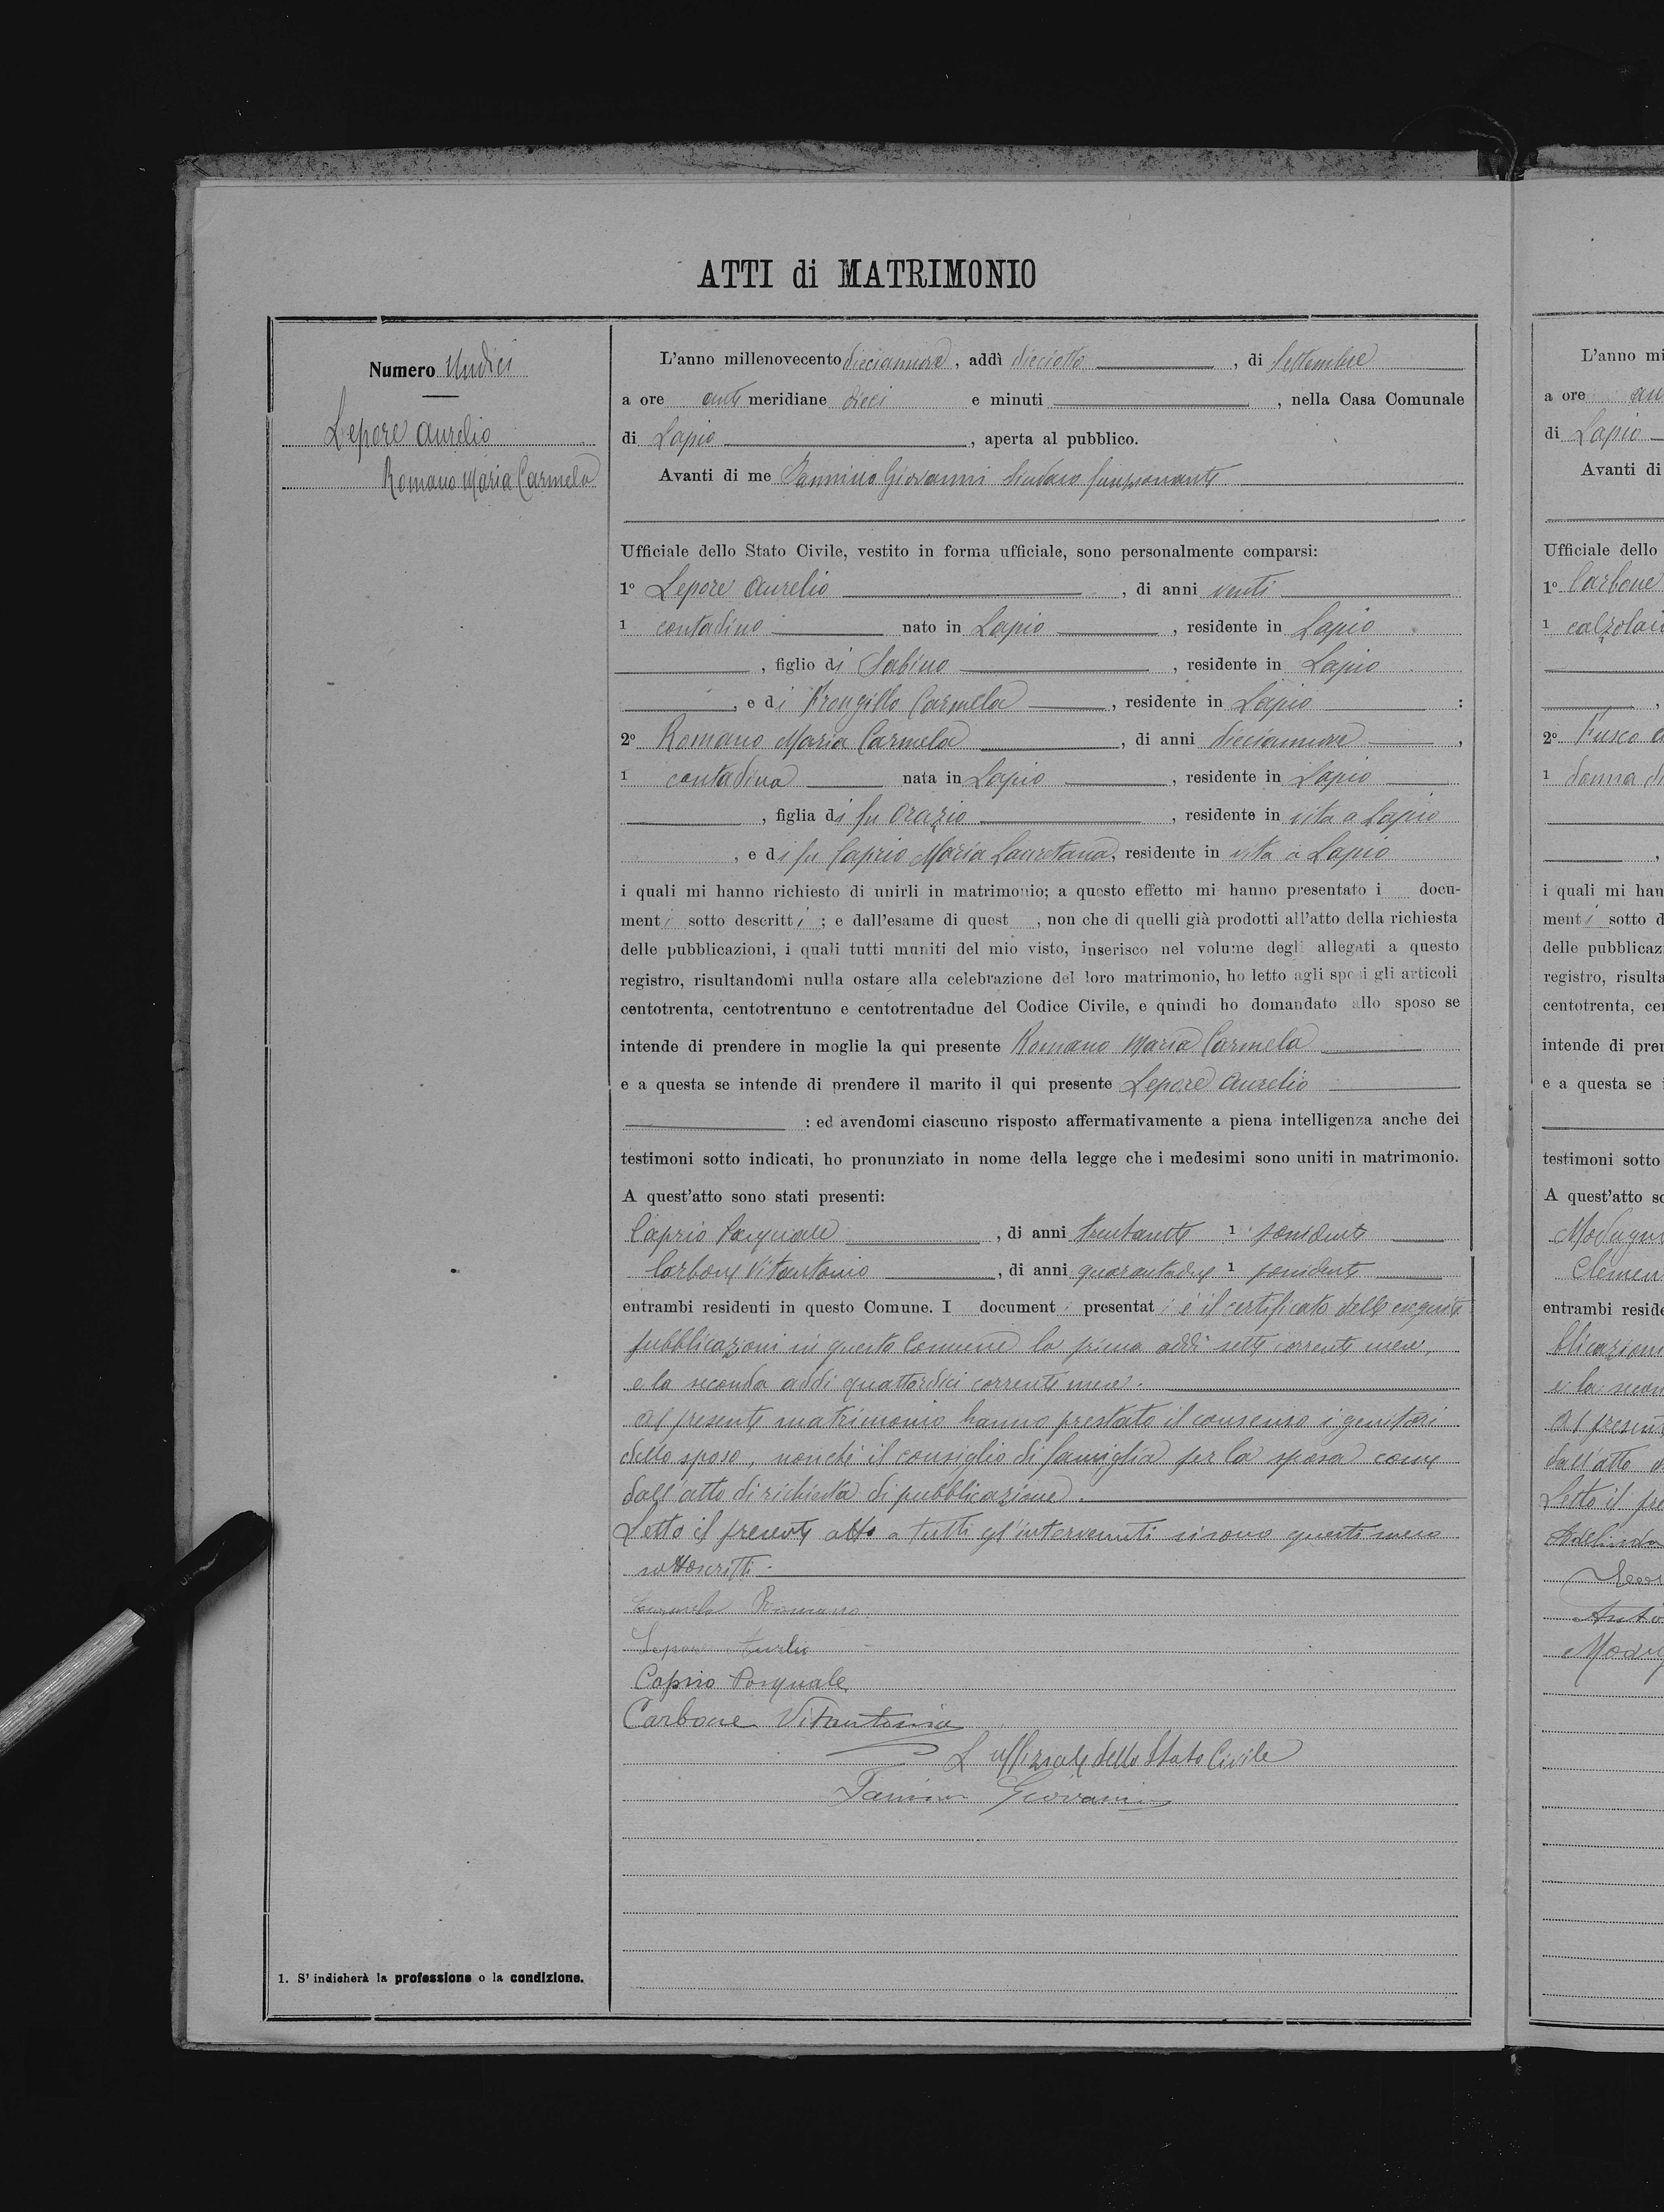 ATTI di MATRIMONIO
Numero Undici
Lepore Aurelio
Romano Maria Carmela
L'anno millenovecento diciannove, addì dieciotto, di Settembre
a ore anti meridiane dieci e minuti, nella Casa Comunale
di Lapio, aperta al pubblico.
Avanti di me Iannino Giovanni Sindaco funzionante
Ufficiale dello Stato Civile, vestito in forma ufficiale, sono personalmente comparsi:
1º Lepore Aurelio, di anni venti
1 contadino nato in Lapio, residente in Lapio
, figlio di Sabino, residente in Lapio
, e di Frongillo Carmela, residente in Lapio :
2º Romano Maria Carmela, di anni dieciannove,
1 contadina nata in Lapio, residente in Lapio
, figlia di fu Orazio, residente in vita a Lapio
, e di fu Caprio Maria Lauretana, residente in vita a Lapio
i quali mi hanno richiesto di unirli in matrimonio; a questo effetto mi hanno presentato i docu-
menti sotto descritti; e dall'esame di quest, non che di quelli già prodotti all'atto della richiesta
delle pubblicazioni, i quali tutti muniti del mio visto, inserisco nel volume degli allegati a questo
registro, risultandomi nulla ostare alla celebrazione del loro matrimonio, ho letto agli sposi gli articoli
centotrenta, centotrentuno e centotrentadue del Codice Civile, e quindi ho domandato allo sposo se
intende di prendere in moglie la qui presente Romano Maria Carmela
e a questa se intende di prendere il marito il qui presente Lepore Aurelio
: ed avendomi ciascuno risposto affermativamente a piena intelligenza anche dei
testimoni sotto indicati, ho pronunziato in nome della legge che i medesimi sono uniti in matrimonio.
A quest'atto sono stati presenti:
Caprio Pasquale, di anni 1 possidente
Carbone Vitantonio, di anni quarantadue 1 possidente
entrambi residenti in questo Comune. I documenti presentati è il certificato delle eseguite
pubblicazioni in questo Comune la prima addì sette corrente mese,
e la seconda addì quattordici corrente mese.
Al presente matrimonio hanno prestato il consenso i genitori
dello sposo, nonchè il consiglio di famiglia per la sposa come
dall'atto di richiesta di pubblicazione.
Letto il presente atto a tutti gl'intervenuti si sono questi meco
sottoscritti.
Carmela Romano
Lepore Aurelio
Caprio Pasquale
Carbone Vitantonio
L'uffiziale dello Stato Civile
Iannino Giovanni
1. S'indicherà la professione o la condizione.
L'anno mi
a ore an
di Lapio
Avanti di
Ufficiale dello
1º Carbone
1 calzolaio
2º Fusco
1 donna di
i quali mi han
menti sotto d
delle pubblicaz
registro, risulta
centotrenta, cen
intende di pren
e a questa se i
testimoni sotto
A quest'atto so
Clemen
entrambi reside
blicazioni
e la secon
Al present
dall'atto d
Letto il pre
Adelinda
Anto